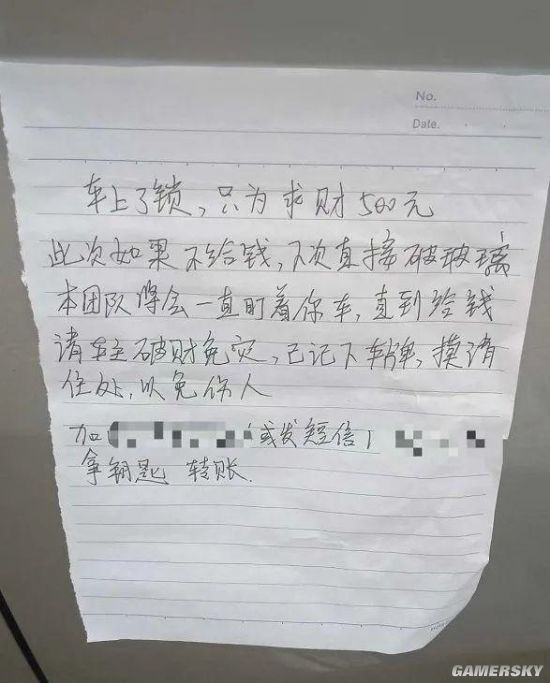 No.
Date.
车上了锁，只为求财500元
此次如果不给钱，下次直接破玻璃
本团队将会一直盯着你车，直到给钱
请车主破财免灾，已记下车牌，摸清
住处，以免伤人
加 或发短信
拿钥匙 转账.
GAMERSKY